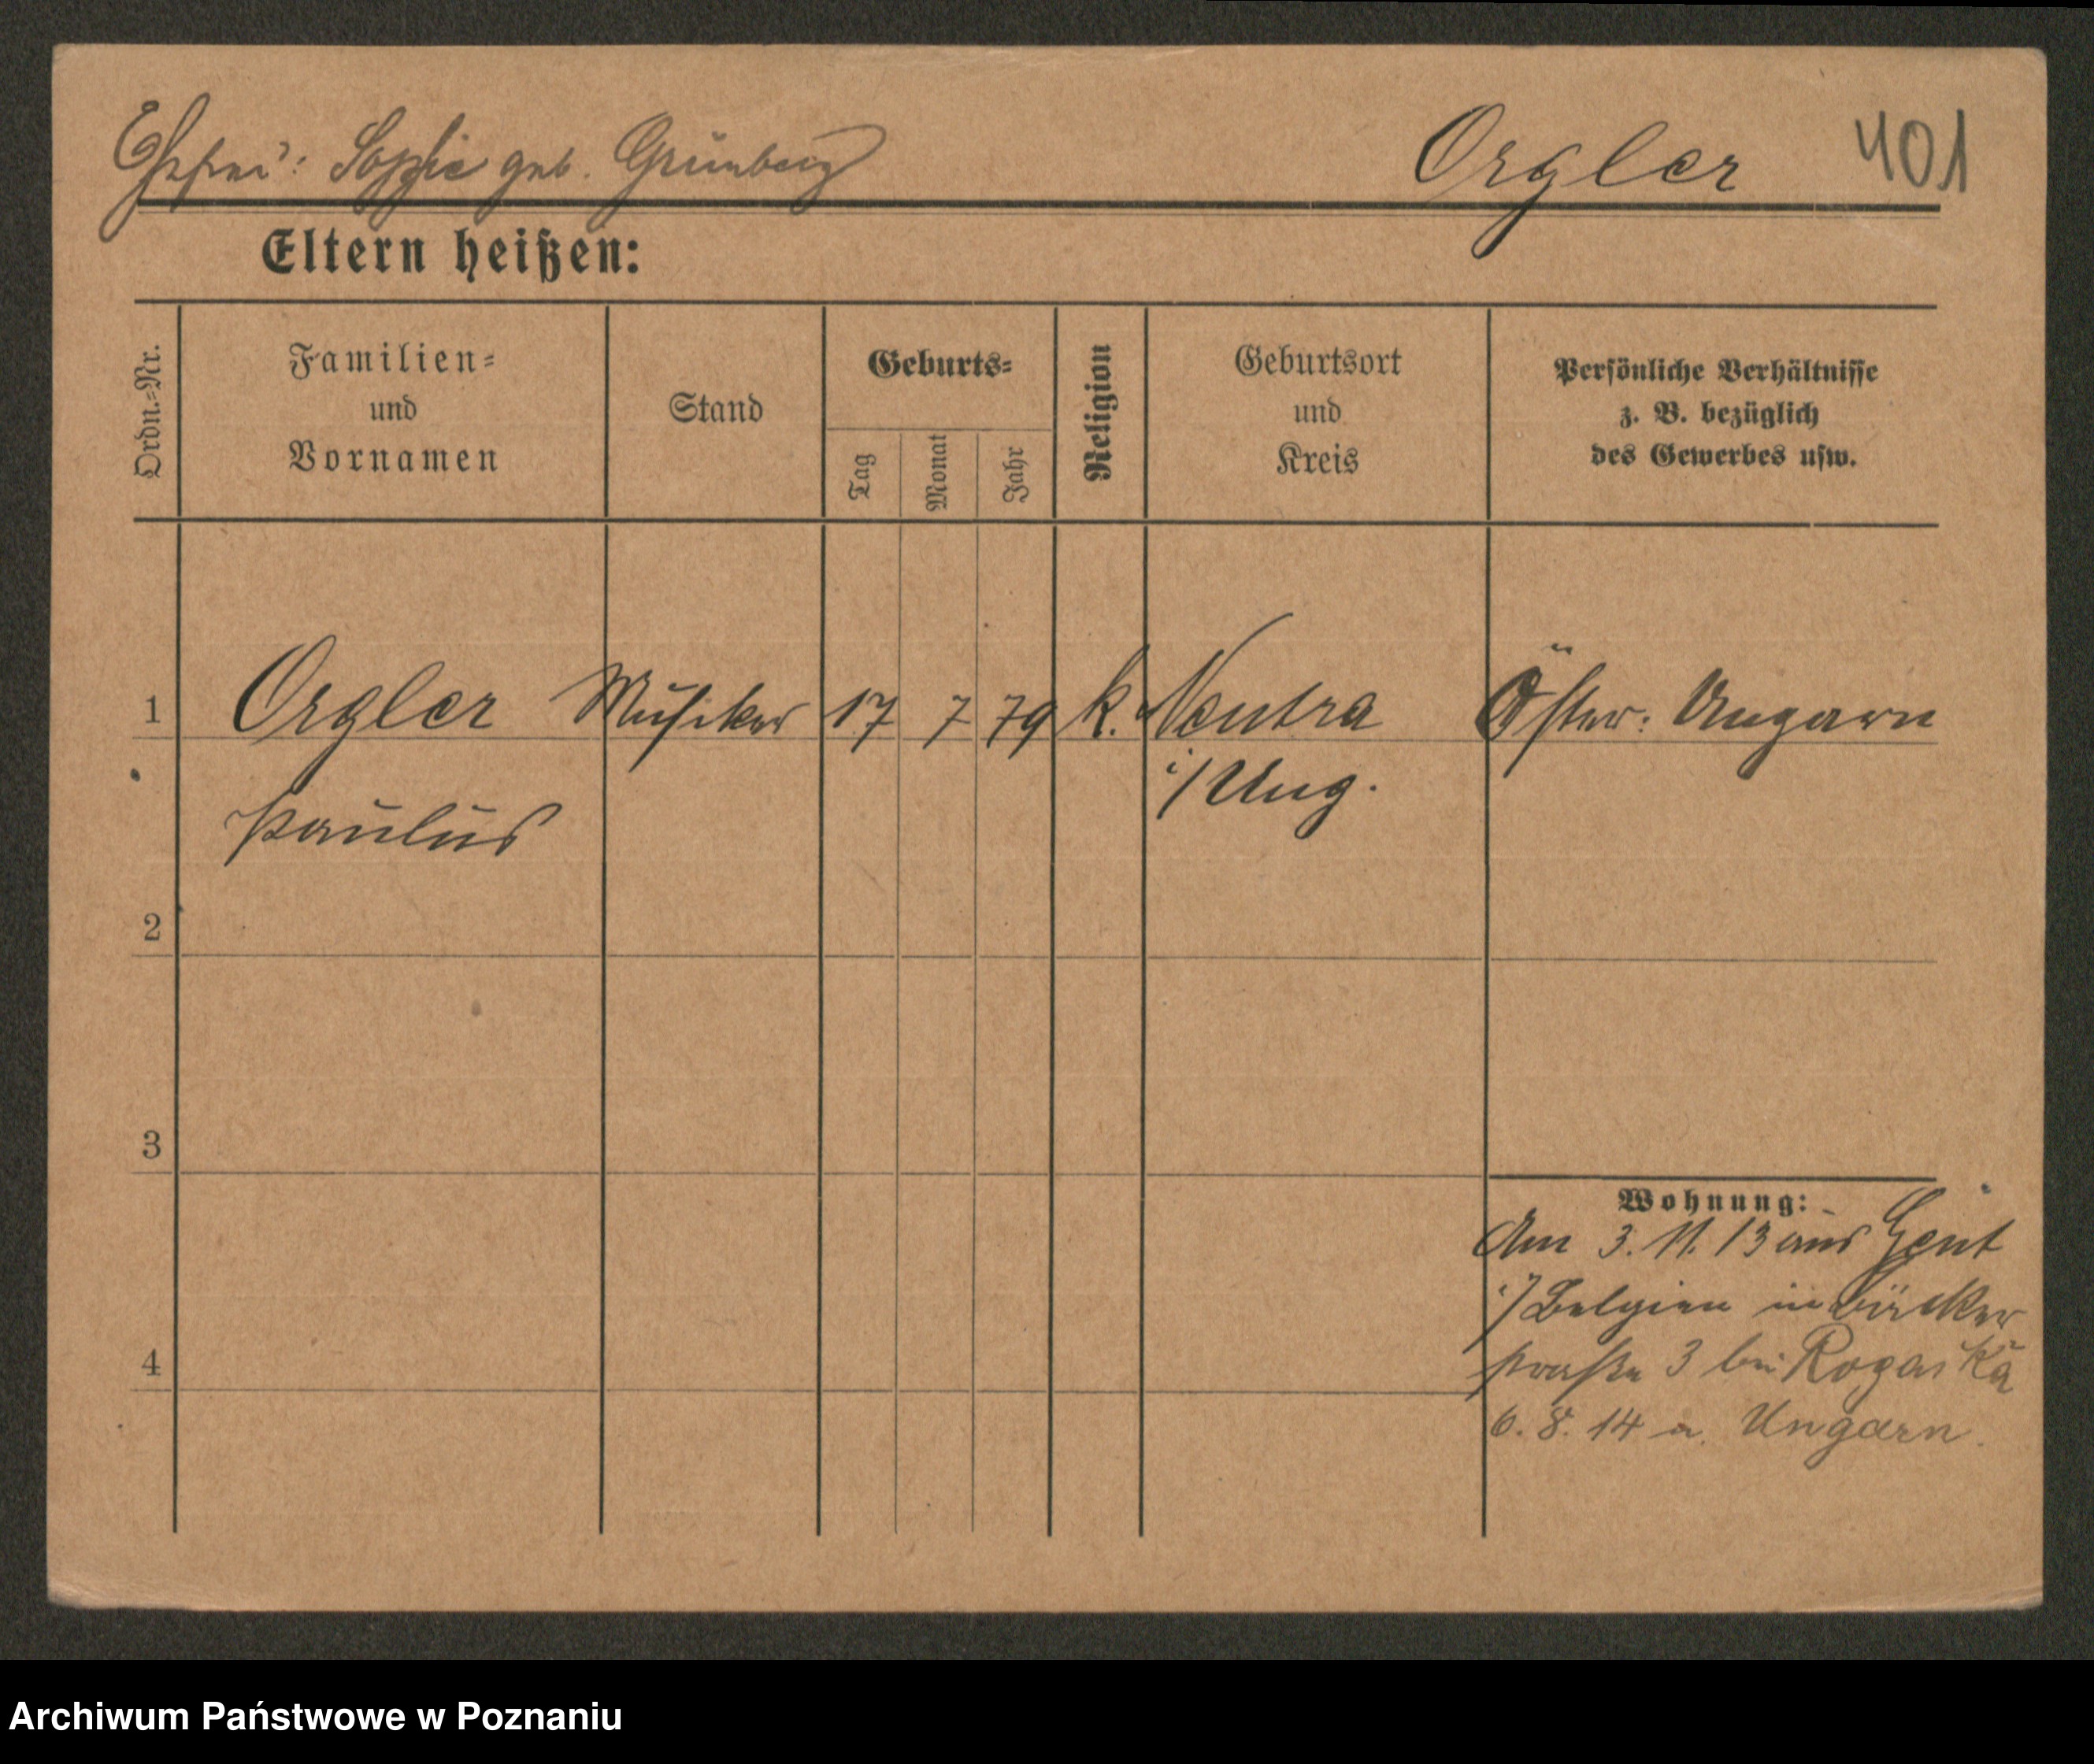 Ehefrau: Sophie geb. Grünberg Orgler 401
Eltern heißen:
Ordn.-Nr.
Familien-
und
Vornamen
Stand
Geburts-
Tag
Monat
Jahr
Religion
Geburtsort
und
Kreis
Persönliche Verhältnisse
z. B. bezüglich
des Gewerbes usw.
1 Orgler Musiker 17 7 79 k. Neutra Öster. Ungarn
i/Ung.
Paulus
2
3
4
Wohnung:
Am 3. 11. 13 aus Gent
i/Belgien in
straße 3 bei Rogas
6. 8. 14 n. Ungarn.
Archiwum Państwowe w Poznaniu